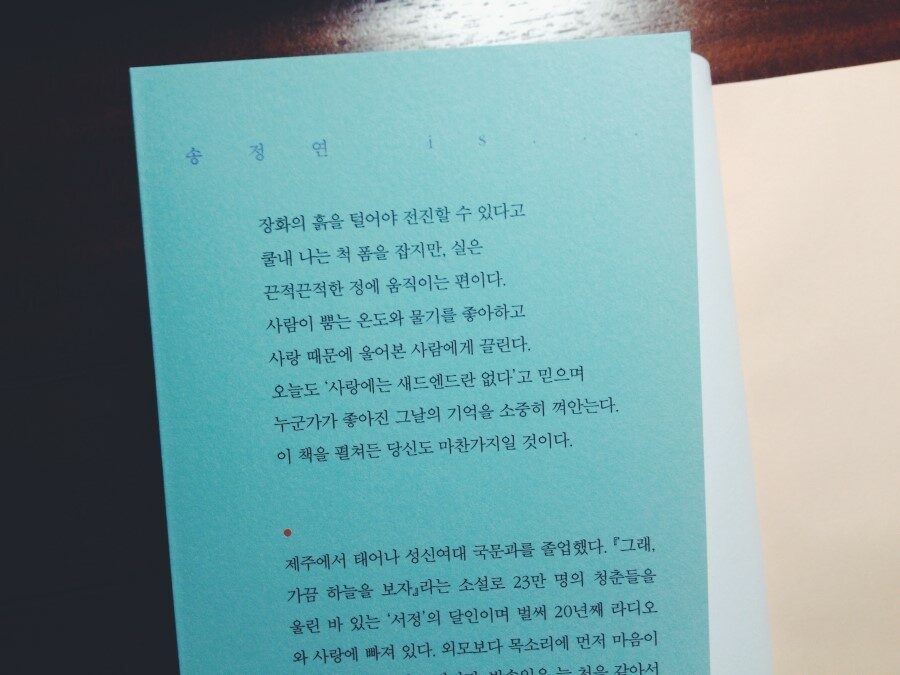 송 정 연 i s . . . .
장화의 흙을 털어야 전진할 수 있다고
쿨내 나는 척 폼을 잡지만, 실은
끈적끈적한 정에 움직이는 편이다.
사람이 뿜는 온도와 물기를 좋아하고
사랑 때문에 울어본 사람에게 끌린다.
오늘도 ‘사랑에는 새드엔드란 없다’고 믿으며
누군가가 좋아진 그날의 기억을 소중히 껴안는다.
이 책을 펼쳐든 당신도 마찬가지일 것이다.
제주에서 태어나 성신여대 국문과를 졸업했다. 『그래,
가끔 하늘을 보자』라는 소설로 23만 명의 청춘들을
울린 바 있는 ‘서정’의 달인이며 벌써 20년째 라디오
와 사랑에 빠져 있다. 외모보다 목소리에 먼저 마음이